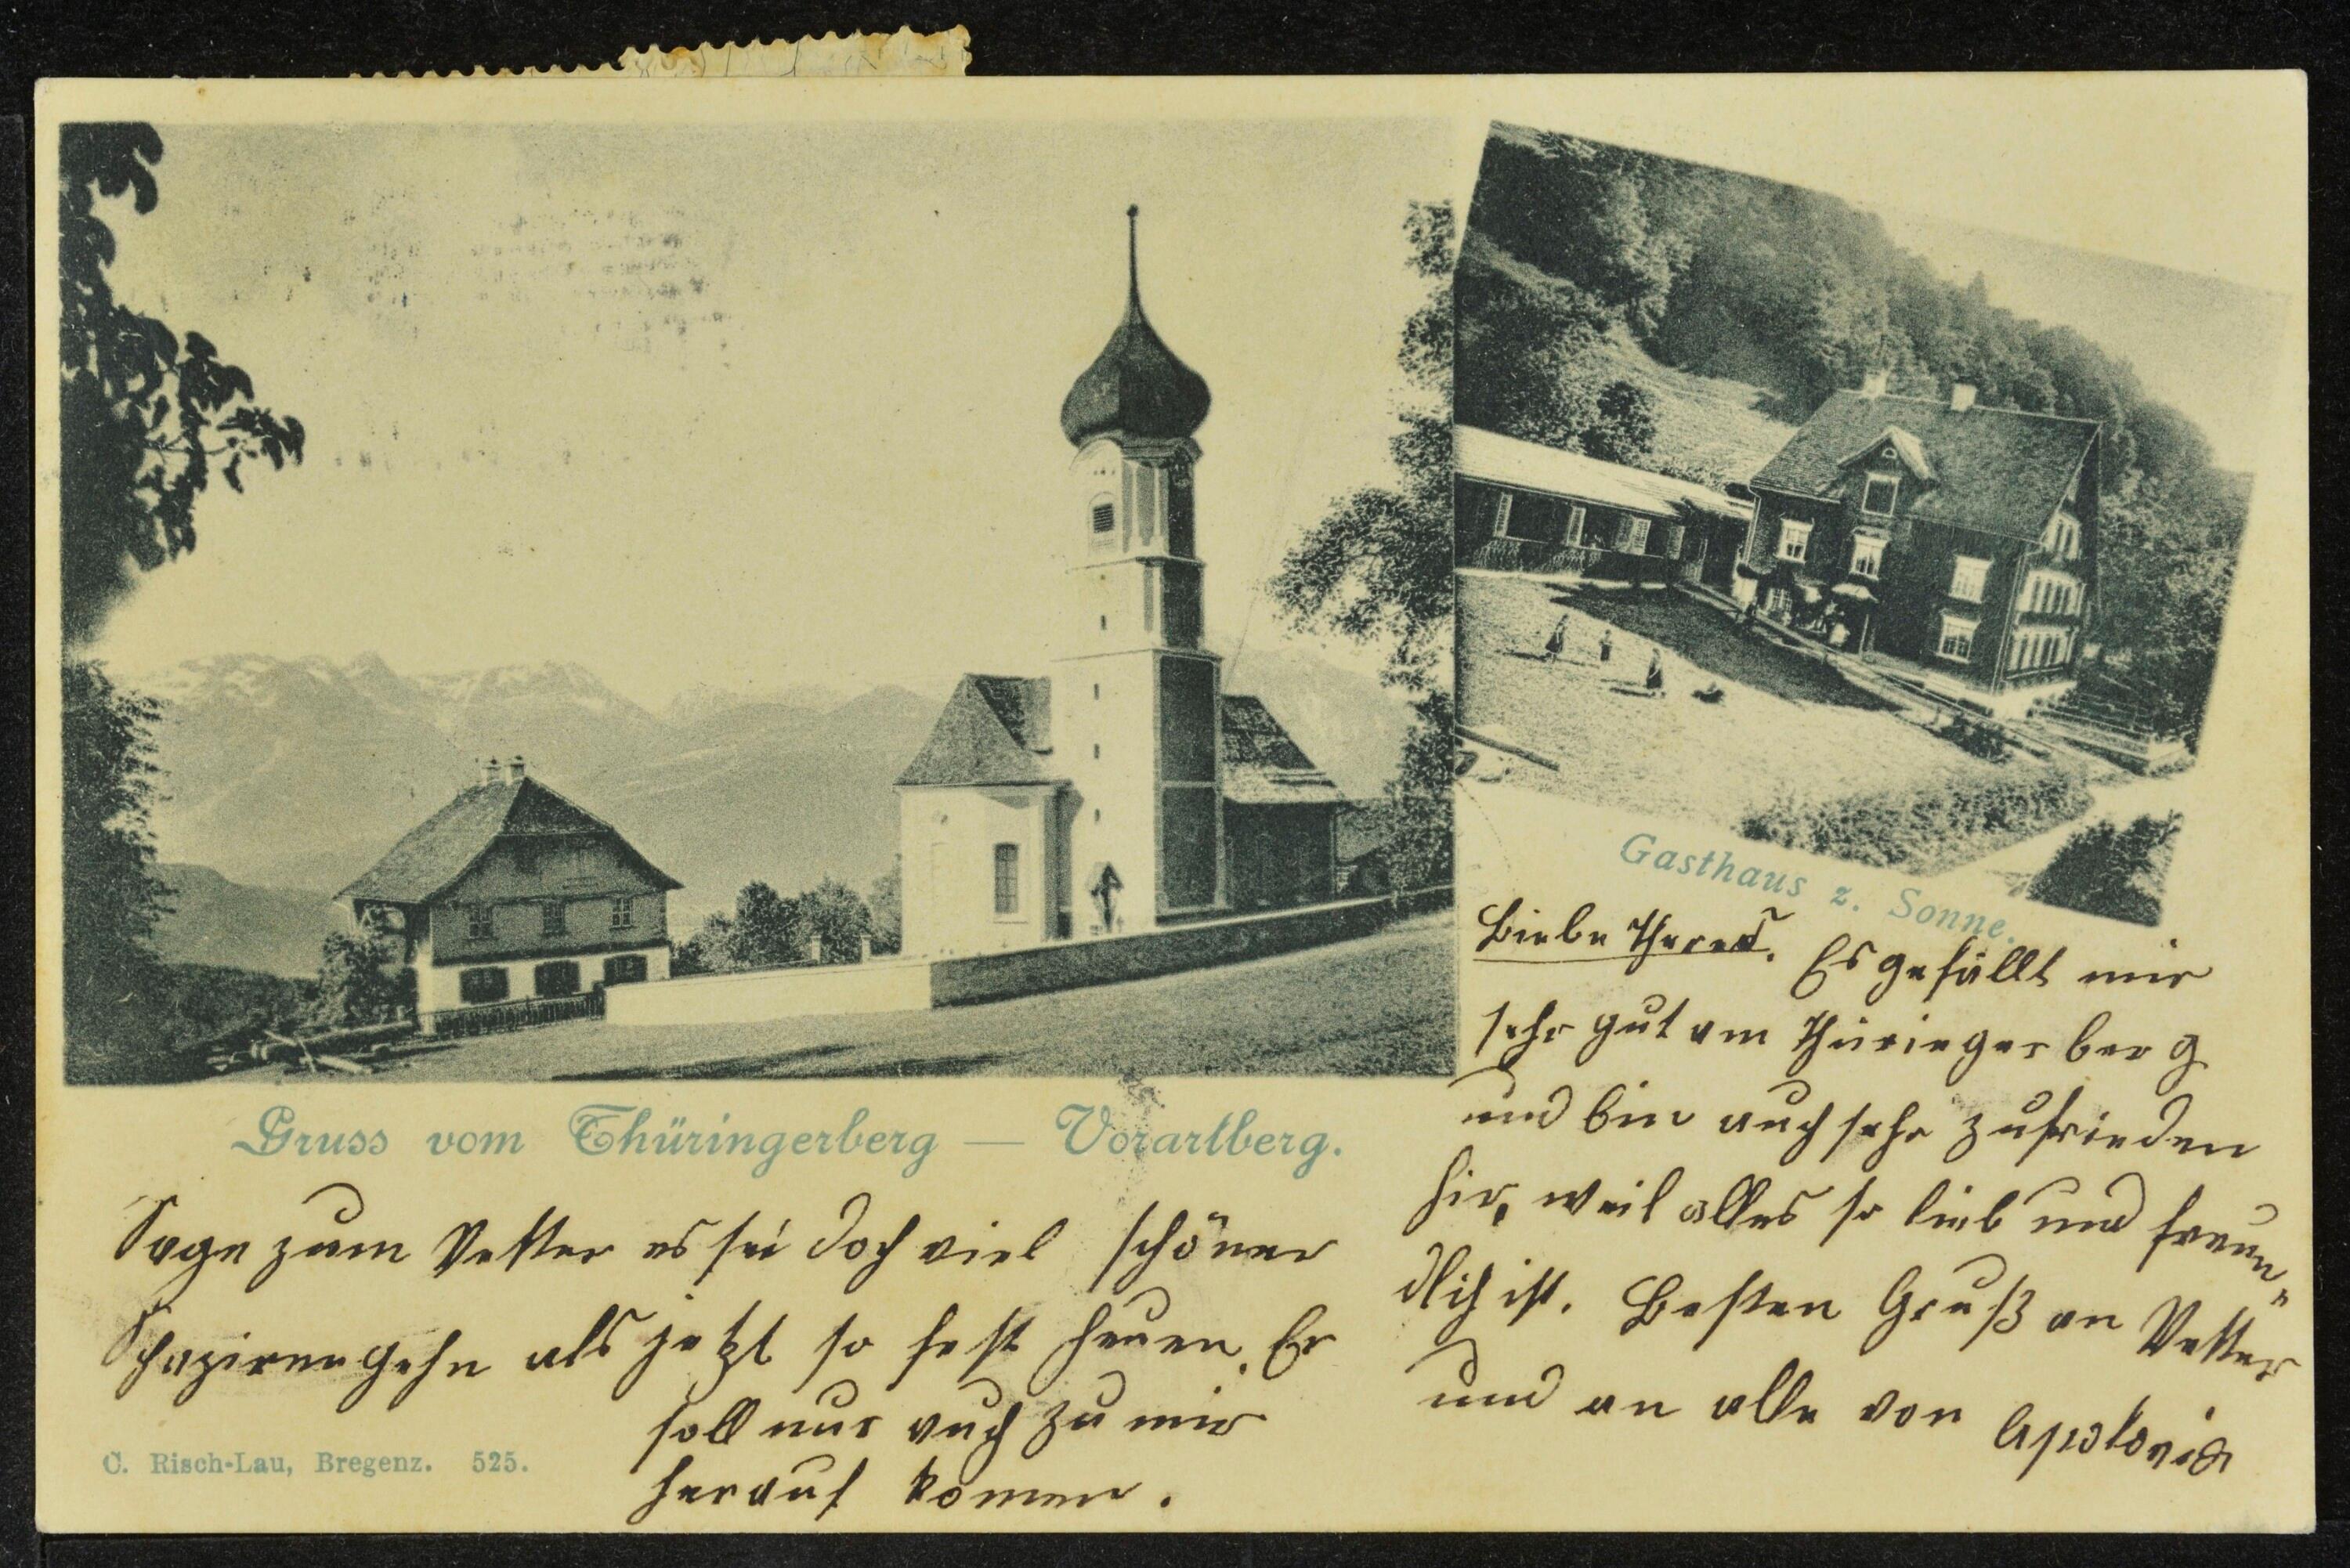 Gasthaus z. Sonne.
Liebe Theres. Es gefällt mir
sehr gut am Thüringerberg
und bin auch sehr zufrieden
hir, weil alles so lieb und freun„
dlich ist. Besten Gruß an Vetter
und an alle von Apolonia
Gruss vom Thüringerberg — Vorarlberg.
Sage zum Vetter es sei doch viel schöner
Spaziren gehn als jetzt so fest heuen. Er
soll nur auch zu mir
herauf komen.
C. Risch-Lau, Bregenz. 525.